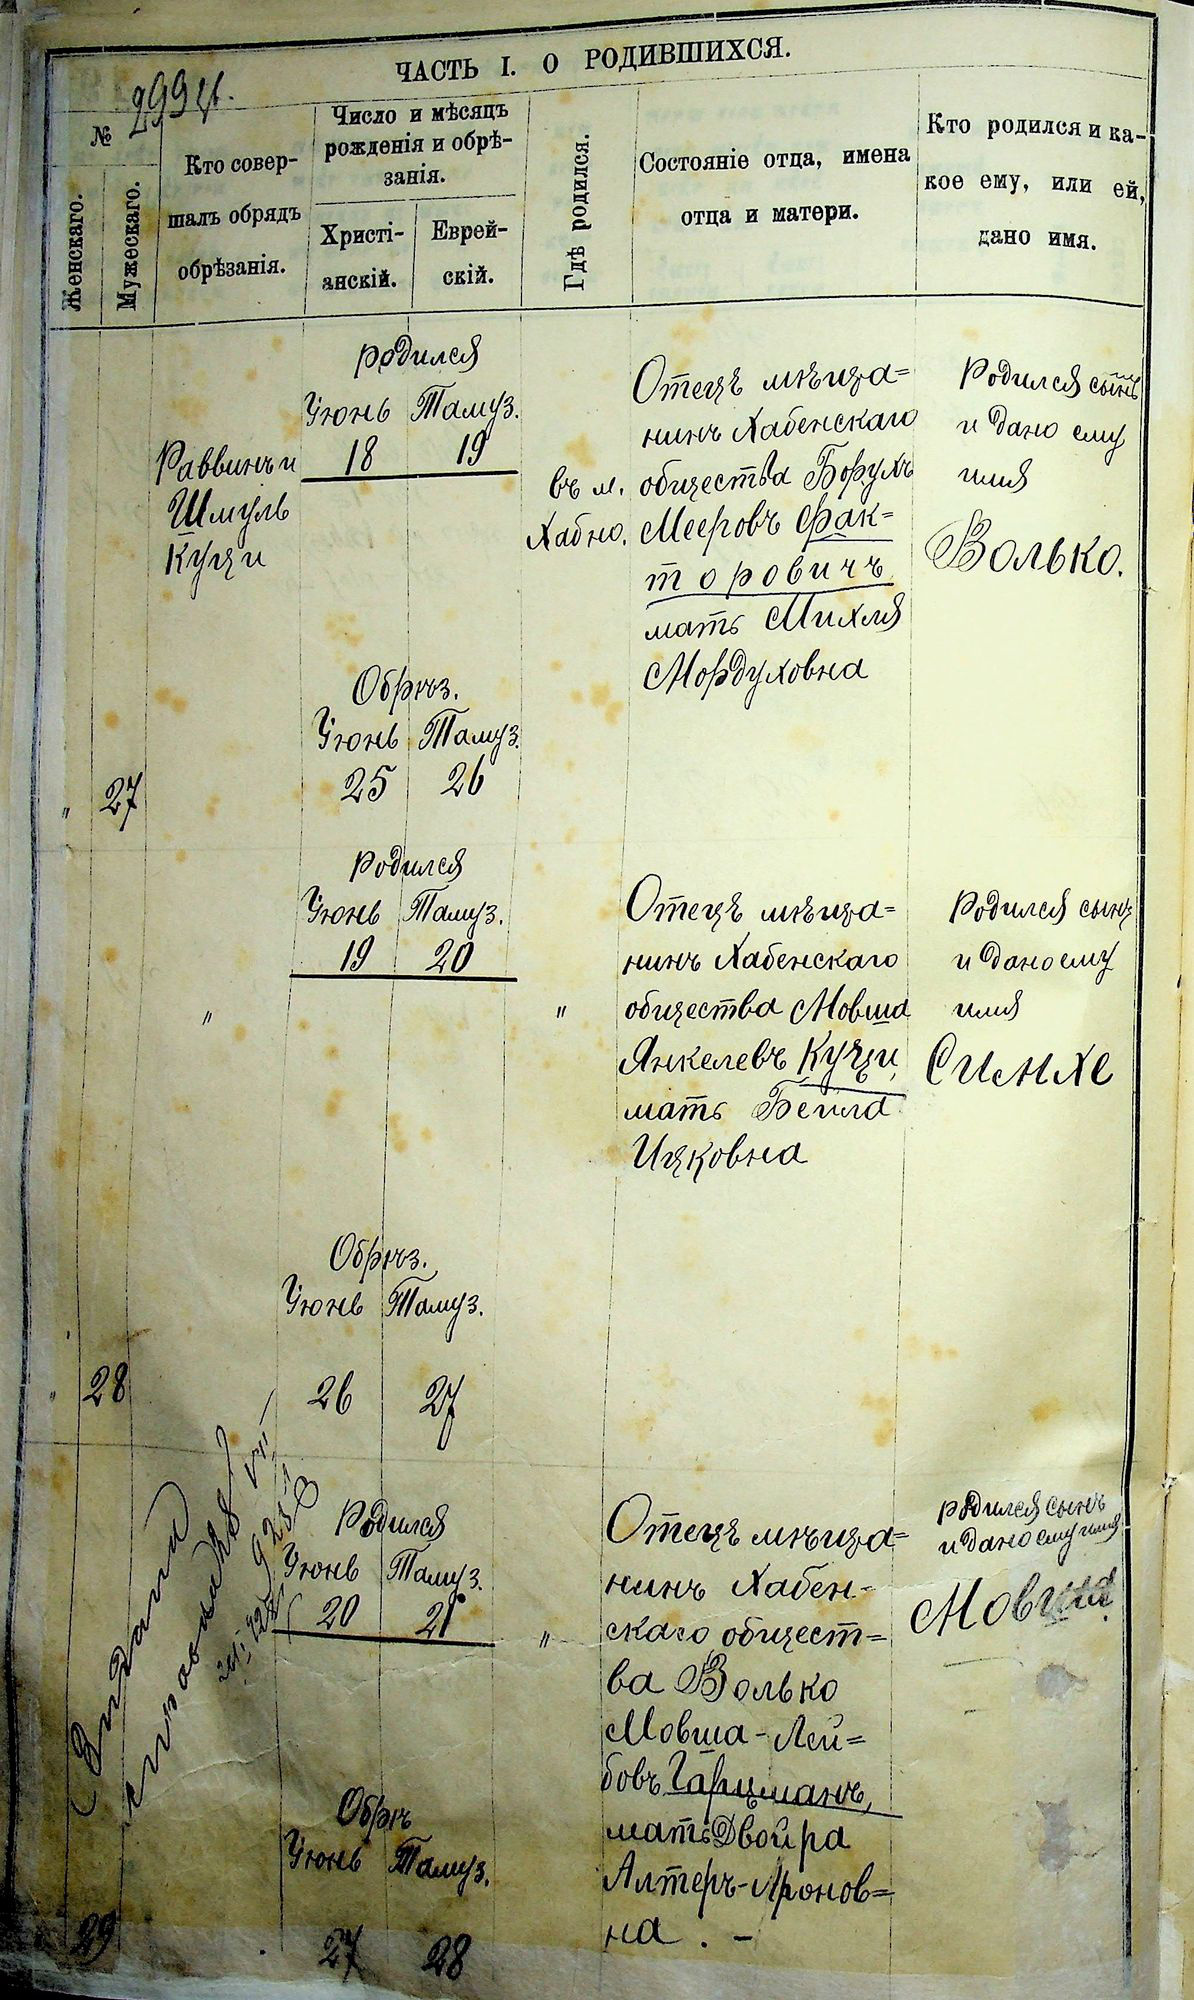 ЧАСТЬ I. О РОДИВШИХСЯ.
299
№
Женскаго.
Мужескаго.
Кто совер-
шалъ обрядъ
обрѣзанія.
Число и мѣсяцъ
рожденія и обрѣ-
занія.
Христі-
анскій.
Еврей-
скій.
Гдѣ родился.
Состояніе отца, имена
отца и матери.
Кто родился и ка-
кое ему, или ей,
дано имя.
"
27
Раввинъ и
Шмуль
Куцци
родился
Июнь Тамуз.
18 19
Обрѣз.
Июнь Тамуз.
25 26
въ м.
Хабно.
Отецъ мѣща=
нинъ Хабенскаго
общества Борухъ
Мееровъ Фак=
торовичъ
мать Михля
Мордуховна
Родился сынъ
и дано ему
имя
Волько.
"
28
"
Родился
Июнь Тамуз.
19 20
Обрѣз.
Июнь Тамуз.
26 27
"
Отецъ мѣща=
нинъ Хабенскаго
общества Мовша
Янкелевъ Куцци,
мать Бейла
Ицковна
Родился сынъ
и дано ему
имя
Симхе
29
Родился
Июнь Тамуз.
20 21
Обрѣ
Июнь Тамуз.
27 28
"
Отецъ мѣща=
нинъ Хабен-
скаго общест=
ва Волько
Мовша-Лей=
бовъ Гарцманъ,
мать Двойра
Алтеръ-Аронов=
на. -
родился сынъ
и дано ему имя
Мовша.